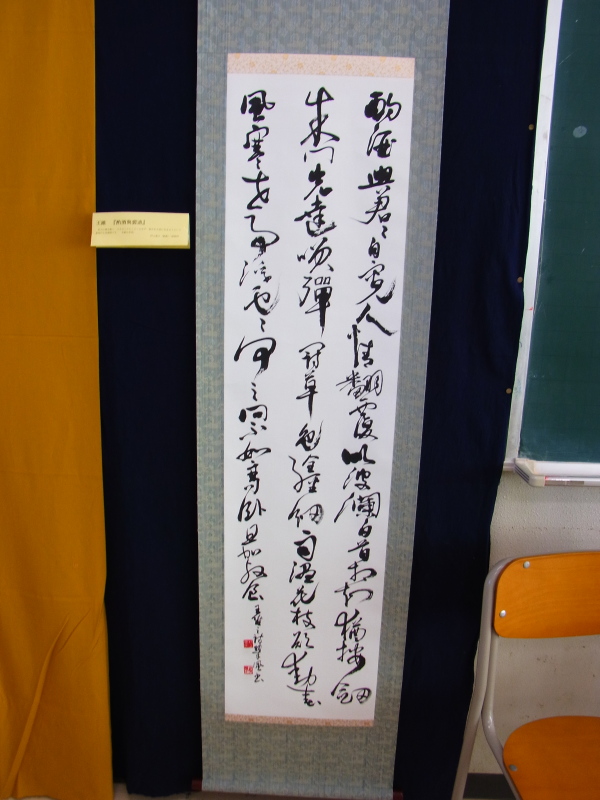 酌酒與君〻自寛人情翻覆似波瀾白首相知猶按劔
朱門先達咲彈冠草色全經細雨湿花枝欲動春
風寒世事浮雲何足問不如高臥且加餐
王維 『酌酒與裴迪』